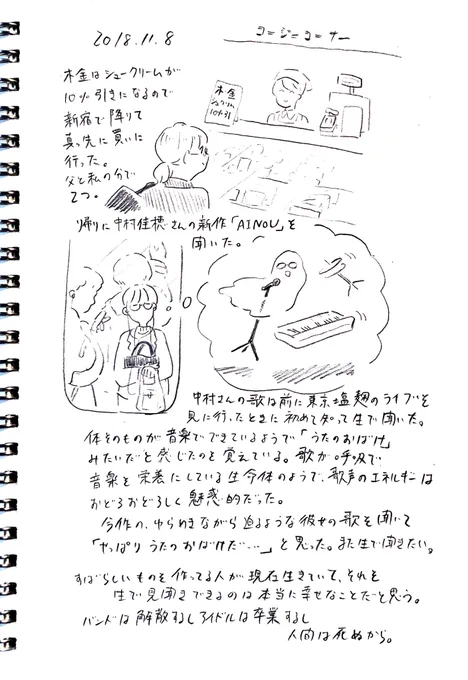 2018.11.8
コージーコーナー
木金はシュークリームが
10%引きになるので
新宿で降りて
真っ先に買いに
行った。
父と私の分で
2つ。
木金
シュークリーム
10%引
帰りに中村佳穂さんの新作「AINOU」を
聞いた。
中村さんの歌は前に東京塩麹のライブを
見に行ったときに初めて知って生で聞いた。
体そのものが音楽でできているようで「うたのおばけ」
みたいだと感じたのを覚えている。歌が呼吸で
音楽を栄養にしている生命体のようで、歌声のエネルギーは
おどろおどろしく魅惑的だった。
今作の、ゆらめきながら迫るような彼女の歌を聞いて
「やっぱりうたのおばけだ…」と思った。また生で聞きたい。
すばらしいものを作ってる人が現在生きていて、それを
生で見聞きできるのは本当に幸せなことだと思う。
バンドは解散するしアイドルは卒業するし
人間は死ぬから。